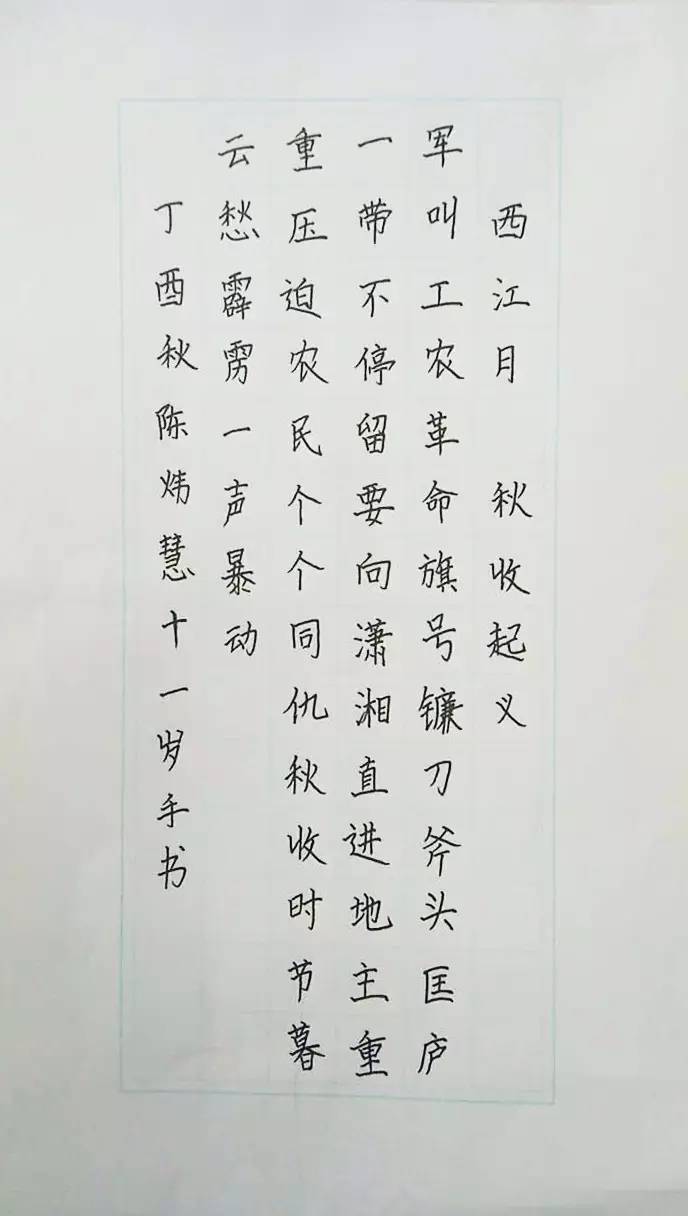 西江月 秋收起义
军叫工农革命旗号镰刀斧头匡庐
一带不停留要向潇湘直进地主重
重压迫农民个个同仇秋收时节暮
云愁霹雳一声暴动
丁酉秋陈炜慧十一岁手书